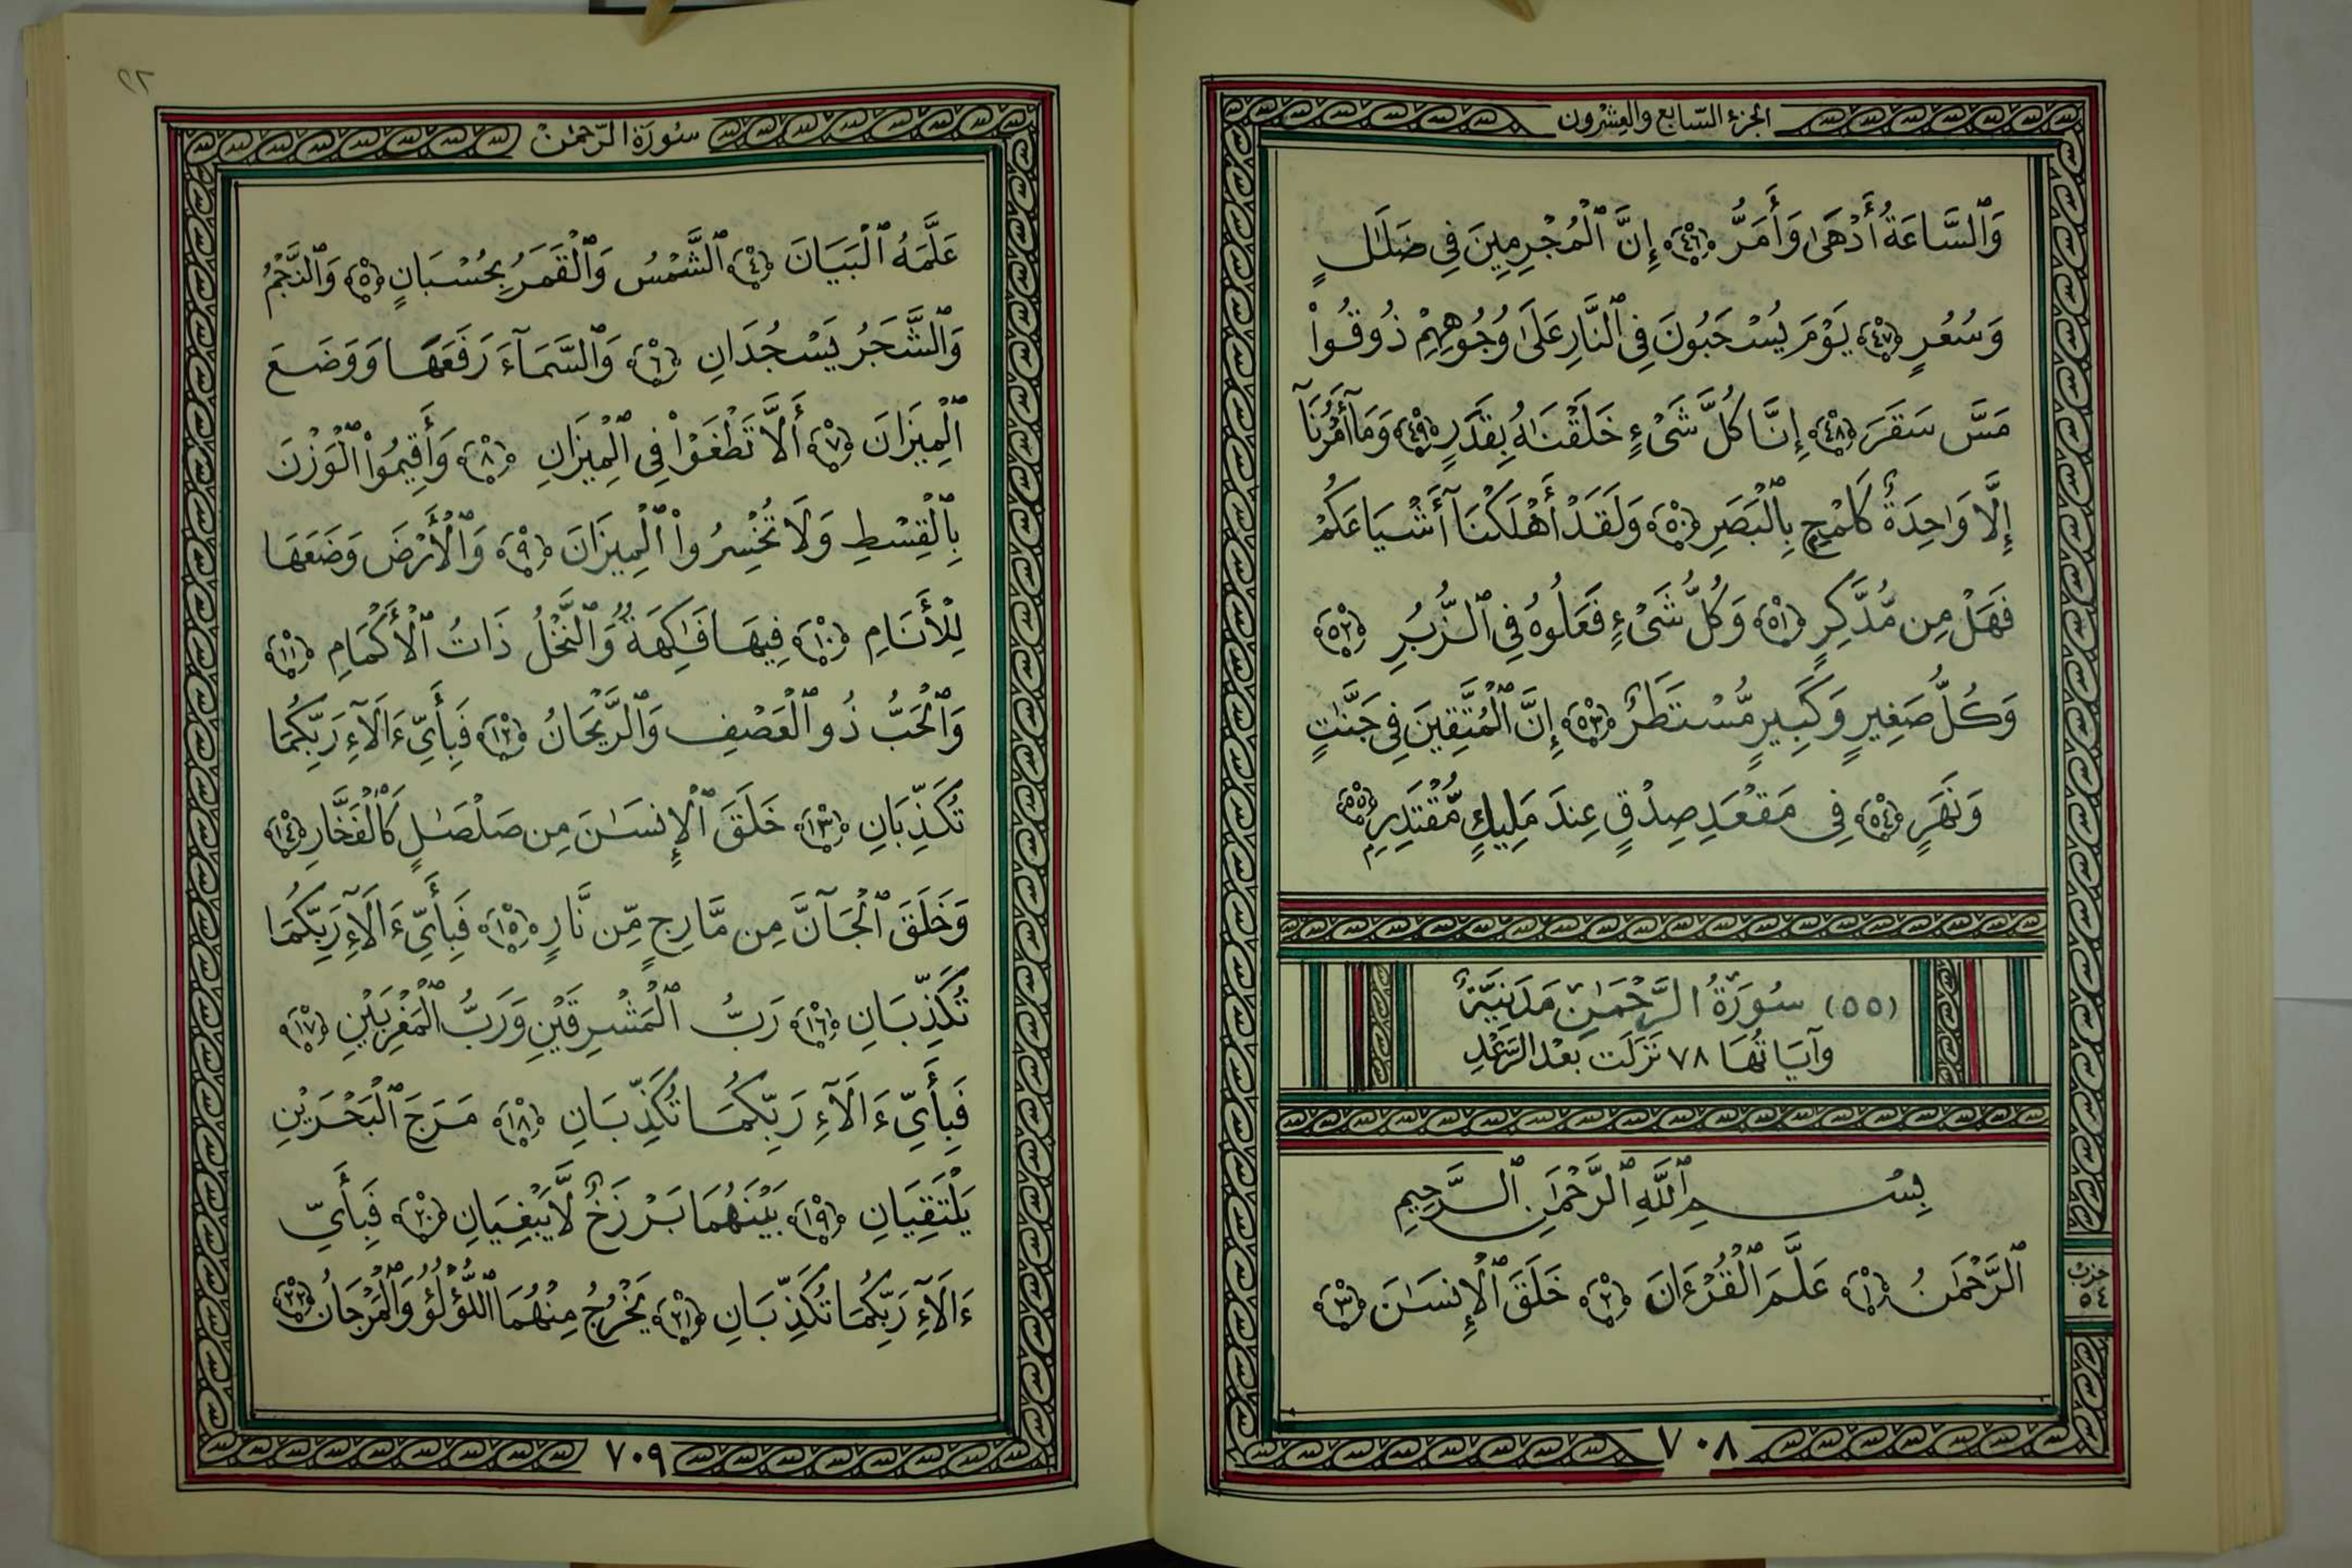 الجزء السّابع والعشرون
وَٱلسَّاعَةُ أَدْهَىٰ وَأَمَرُّ ﴿٤٦﴾ إِنَّ ٱلْمُجْرِمِينَ فِى ضَلَٰلٍ
وَسُعُرٍ ﴿٤٧﴾ يَوْمَ يُسْحَبُونَ فِى ٱلنَّارِ عَلَىٰ وُجُوهِهِمْ ذُوقُوا۟
مَسَّ سَقَرَ ﴿٤٨﴾ إِنَّا كُلَّ شَىْءٍ خَلَقْنَٰهُ بِقَدَرٍ ﴿٤٩﴾ وَمَآ أَمْرُنَآ
إِلَّا وَٰحِدَةٌ كَلَمْحٍ بِٱلْبَصَرِ ﴿٥٠﴾ وَلَقَدْ أَهْلَكْنَآ أَشْيَاعَكُمْ
فَهَلْ مِن مُّدَّكِرٍ ﴿٥١﴾ وَكُلُّ شَىْءٍ فَعَلُوهُ فِى ٱلزُّبُرِ ﴿٥٢﴾
وَكُلُّ صَغِيرٍ وَكَبِيرٍ مُّسْتَطَرٌ ﴿٥٣﴾ إِنَّ ٱلْمُتَّقِينَ فِى جَنَّٰتٍ
وَنَهَرٍ ﴿٥٤﴾ فِى مَقْعَدِ صِدْقٍ عِندَ مَلِيكٍ مُّقْتَدِرٍۭ ﴿٥٥﴾
(٥٥) سُورَةُ الرَّحْمَٰن مَدَنِيَّةٌ
وَآيَاتُهَا ٧٨ نَزَلَت بَعْدَ الرَّعْدِ
بِسْمِ ٱللَّهِ ٱلرَّحْمَٰنِ ٱلرَّحِيمِ
ٱلرَّحْمَٰنُ ﴿١﴾ عَلَّمَ ٱلْقُرْءَانَ ﴿٢﴾ خَلَقَ ٱلْإِنسَٰنَ ﴿٣﴾
حزب
٥٤
٧٠٨
سُورَة الرَّحمٰن
عَلَّمَهُ ٱلْبَيَانَ ﴿٤﴾ ٱلشَّمْسُ وَٱلْقَمَرُ بِحُسْبَانٍ ﴿٥﴾ وَٱلنَّجْمُ
وَٱلشَّجَرُ يَسْجُدَانِ ﴿٦﴾ وَٱلسَّمَآءَ رَفَعَهَا وَوَضَعَ
ٱلْمِيزَانَ ﴿٧﴾ أَلَّا تَطْغَوْا۟ فِى ٱلْمِيزَانِ ﴿٨﴾ وَأَقِيمُوا۟ ٱلْوَزْنَ
بِٱلْقِسْطِ وَلَا تُخْسِرُوا۟ ٱلْمِيزَانَ ﴿٩﴾ وَٱلْأَرْضَ وَضَعَهَا
لِلْأَنَامِ ﴿١٠﴾ فِيهَا فَٰكِهَةٌ وَٱلنَّخْلُ ذَاتُ ٱلْأَكْمَامِ ﴿١١﴾
وَٱلْحَبُّ ذُو ٱلْعَصْفِ وَٱلرَّيْحَانُ ﴿١٢﴾ فَبِأَىِّ ءَالَآءِ رَبِّكُمَا
تُكَذِّبَانِ ﴿١٣﴾ خَلَقَ ٱلْإِنسَٰنَ مِن صَلْصَٰلٍ كَٱلْفَخَّارِ ﴿١٤﴾
وَخَلَقَ ٱلْجَآنَّ مِن مَّارِجٍ مِّن نَّارٍ ﴿١٥﴾ فَبِأَىِّ ءَالَآءِ رَبِّكُمَا
تُكَذِّبَانِ ﴿١٦﴾ رَبُّ ٱلْمَشْرِقَيْنِ وَرَبُّ ٱلْمَغْرِبَيْنِ ﴿١٧﴾
فَبِأَىِّ ءَالَآءِ رَبِّكُمَا تُكَذِّبَانِ ﴿١٨﴾ مَرَجَ ٱلْبَحْرَيْنِ
يَلْتَقِيَانِ ﴿١٩﴾ بَيْنَهُمَا بَرْزَخٌ لَّا يَبْغِيَانِ ﴿٢٠﴾ فَبِأَىِّ
ءَالَآءِ رَبِّكُمَا تُكَذِّبَانِ ﴿٢١﴾ يَخْرُجُ مِنْهُمَا ٱللُّؤْلُؤُ وَٱلْمَرْجَانُ ﴿٢٢﴾
٧٠٩